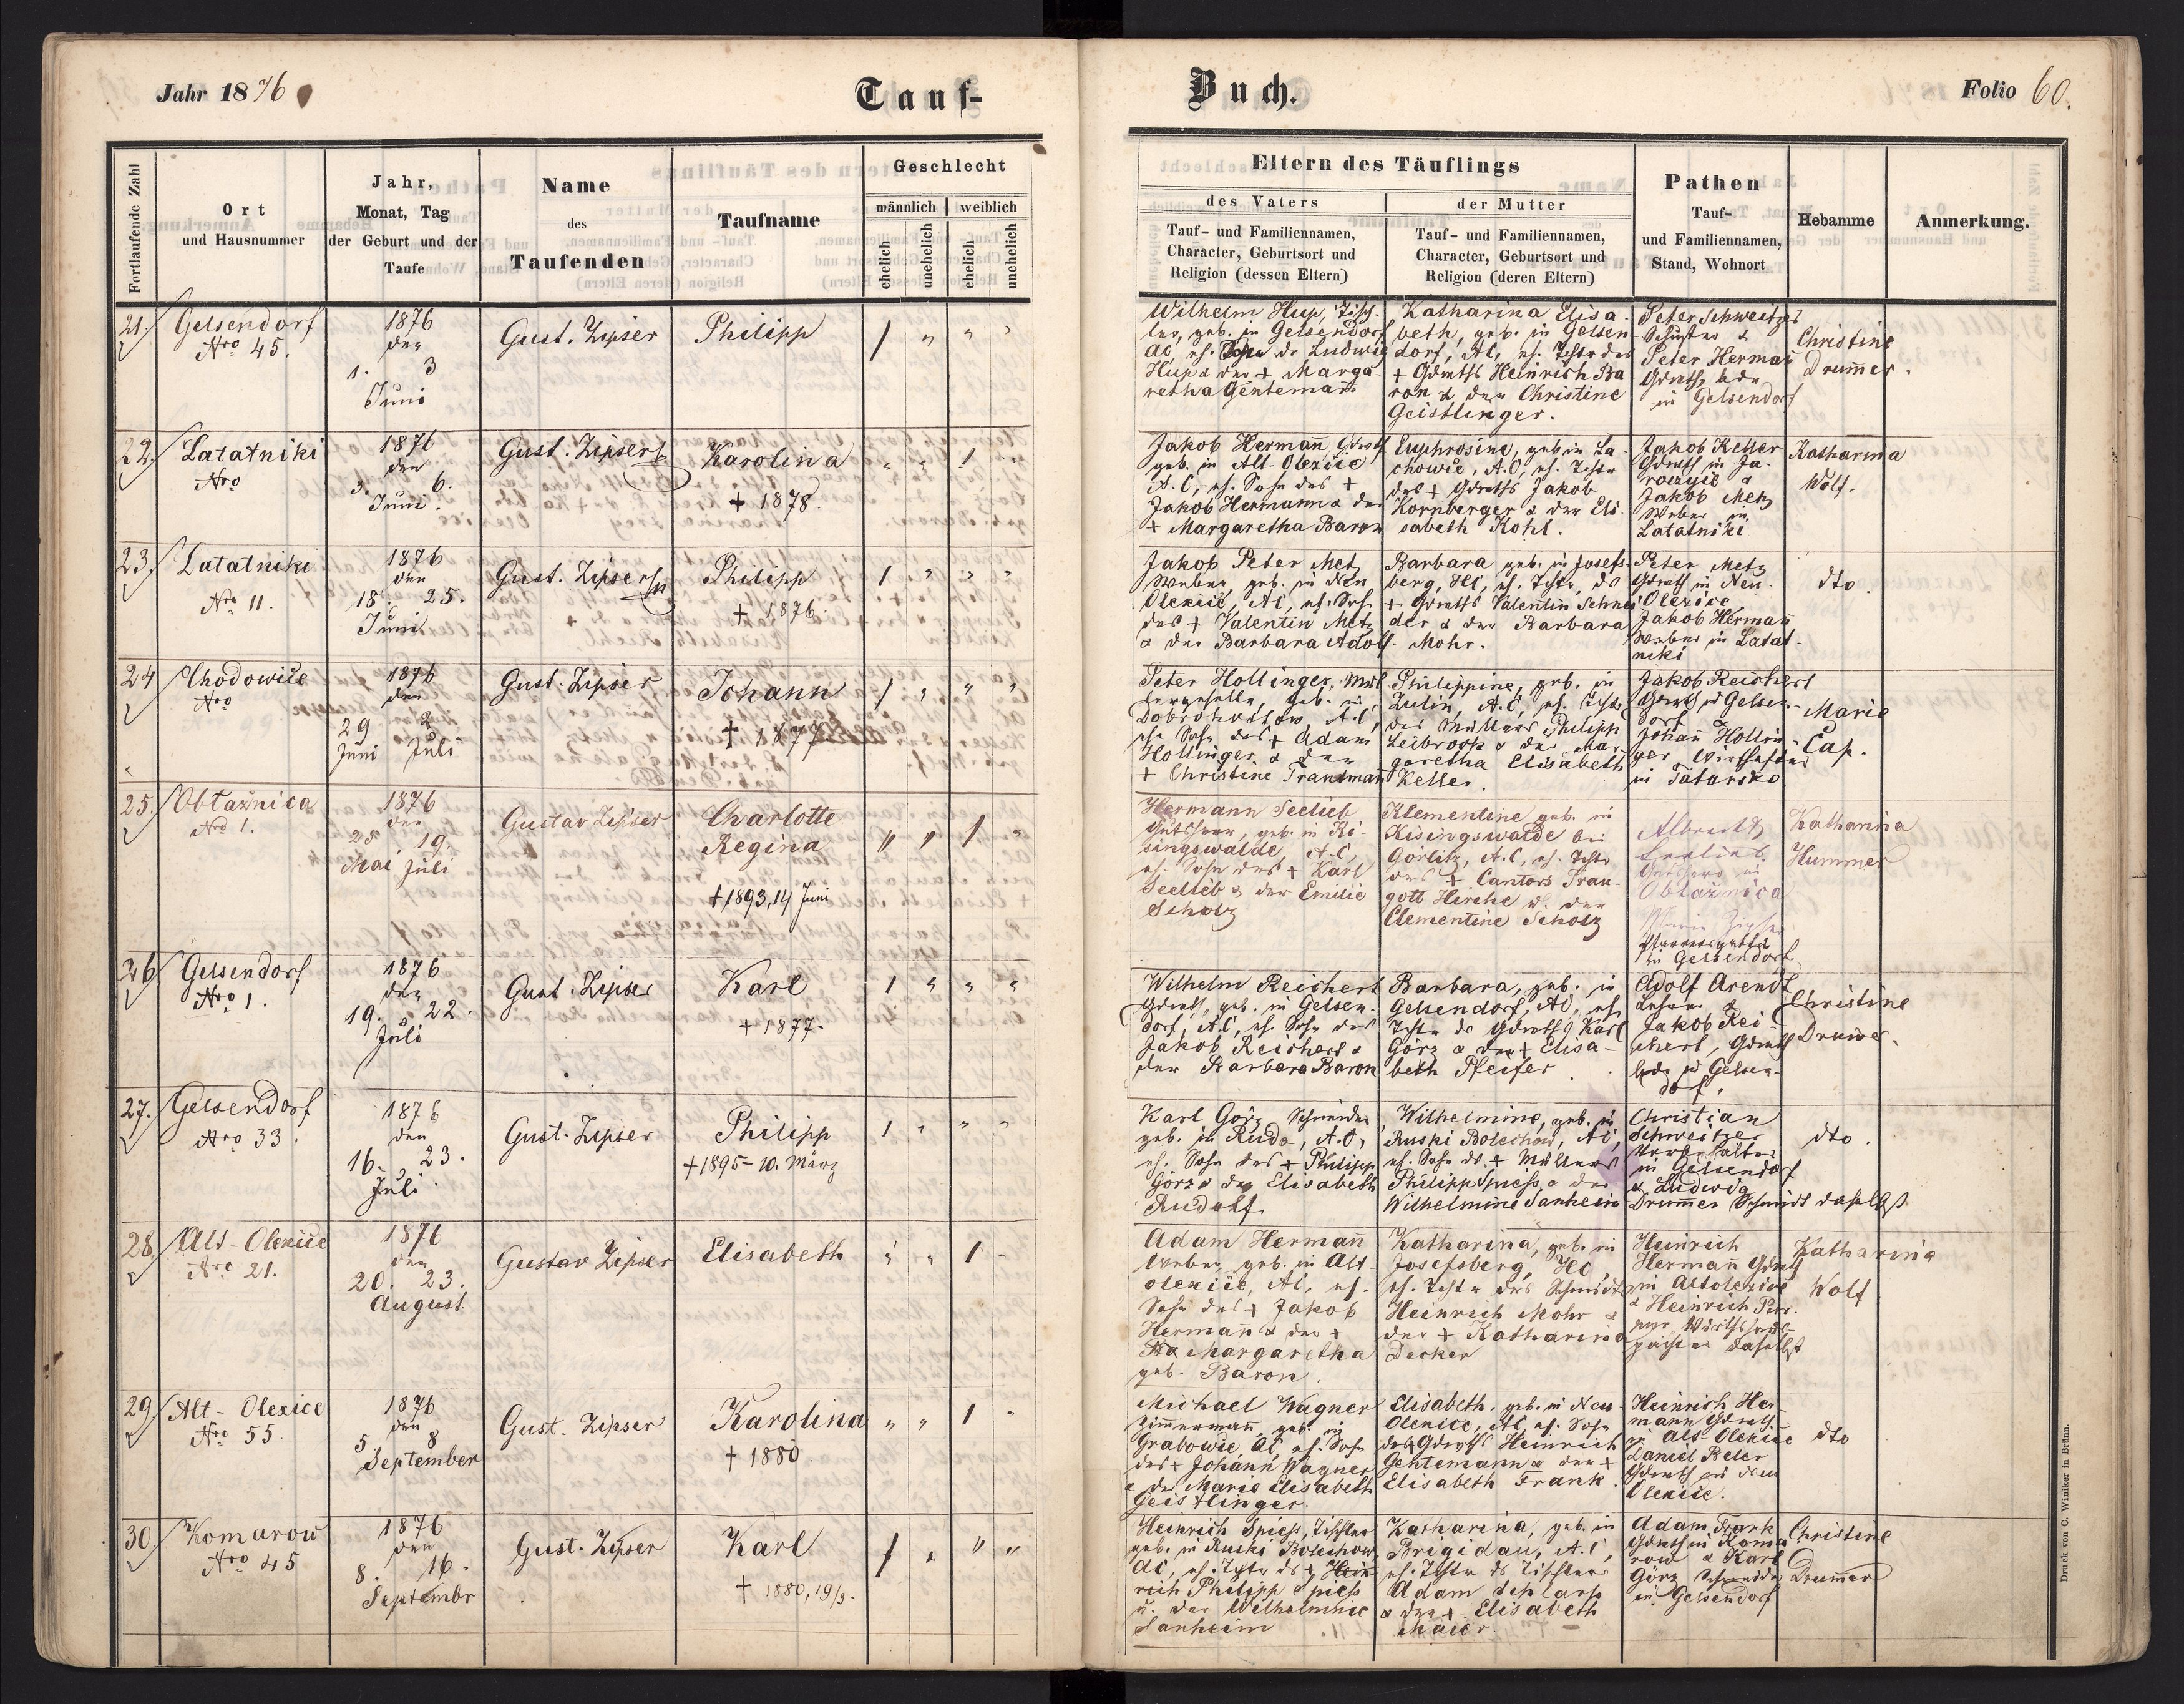 Jahr 1876
Tauf-
Buch.
Folio 60.
Fortlaufende Zahl
Ort
und Hausnummer
Jahr,
Monat, Tag
der Geburt und der
Taufe
Name
des
Taufenden
Taufname
Geschlecht
männlich weiblich
ehelich
unehelich
ehelich
unehelich
Eltern des Täuflings
des Vaters
Tauf- und Familiennamen,
Character, Geburtsort und
Religion (dessen Eltern)
der Mutter
Tauf- und Familiennamen,
Character, Geburtsort und
Religion (deren Eltern)
Pathen
Tauf-
und Familiennamen,
Stand, Wohnort
Hebamme
Anmerkung.
21.
Gelsendorf
Nro 45.
1876
den
1. 3
Juni
Gust. Zipser
Philipp
/ " " "
Wilhelm Hup, Tisch-
ler, geb. in Gelsendorf
AC, eh. Sohn ds Ludwig
Hup & der + Marga-
retha Gentemann
Katharina Elisa-
beth, geb. in Gelsen-
dorf, AC, eh. Tchtr des
+ Gdwrths Heinrich Ba-
ron & der Christine
Geistlinger.
Peter Schweitzer
Schuster &
Peter Hermañ
Gdwrth, bde
in Gelsendorf
Christine
Drum̄er.
22.
Latatniki
Nro
1876
den
3. 6.
Juni.
Gust. Zipser
Karolina
+ 1878.
" " / "
Jakob Hermañ Gdwrth
geb. in Alt-Olexice
A.C, eh. Sohn des +
Jakob Hermann & der
+ Margaretha Baron
Euphrosine, geb. in La-
chowice, A.C, eh. Tchtr
des + Gdwrths Jakob
Kornberger & der Eli-
sabeth Kohl.
Jakob Keller
Gdwrth in Ja-
roszyce &
Jakob Metz
Weber in
Latatniki
Katharina
Wolf.
23.
Latatniki
Nro 11.
1876
den
18. 25.
Juni
Gust. Zipser
Philipp
+ 1876.
/ " " "
Jakob Peter Metz
Weber, geb. in Neu
Olexice, AC, eh. Sohn
des + Valentin Metz
& der Barbara Adolf.
Barbara geb. in Josefs-
berg, HC, eh. Tchtr, ds
+ Gdwrths Valentin Schnei-
der & der Barbara
Mohr.
Peter Metz
Gdwrth in Neu-
Olexice
Jakob Hermañ
Weber in Latat-
niki
dto.
24
Chodowice
Nro
1876
den
29 2
Juni Juli
Gust. Zipser
Johann
+ 1877
/ " " "
Peter Hollinger, Mül-
lergeselle, geb. in
Dobrohostow, A.C,
eh. Sohn des + Adam
Hollinger & der
+ Christine Trautmann
Philippine, geb. in
Zulin, A.C, eh. Tchtr
des Müllers Philipp
Leibrock & der Mar-
garetha Elisabeth
Keller.
Jakob Reichert
Gdwrth in Gelsen-
dorf
Johañ Hollin-
ger Wirthschafter
in Tatarsko.
Marie
Cap.
25.
Oblaznica
Nro 1.
1876
den
28. 19.
Mai Juli
Gustav Zipser
Charlotte
Regina
+ 1893, 14 Juni
" " / "
Hermann Seelieb
Gutsherr, geb. in Ki-
singswalde, A.C,
eh. Sohn des + Karl
Seelieb & der Emilie
Scholz
Klementine geb. in
Kisingswalde bei
Görlitz, A.C, eh. Tchtr
des + Cantors Trau-
gott Hirche u. der
Clementine Scholz
Albrecht
Seelieb
Gutsherr in
Oblaznica
Pfarrersgattin
in Gelsendorf.
Katharina
Hummer
26.
Gelsendorf
Nro 1.
1876
den
19. 22.
Juli
Gust. Zipser
Karl
+ 1877.
/ " " "
Wilhelm Reichert
Gdwrth, geb. in Gelsen-
dorf, A.C, eh. Sohn des
Jakob Reichert &
der Barbara Baron
Barbara, geb. in
Gelsendorf, AC, eh.
Tchtr ds Gdwrths Karl
Görz & der + Elisa-
beth Pfeifer
Adolf Arendt
Lehrer &
Jakob Rei-
chert, Gdwrth
bde in Gelsen-
dorf.
Christine
Drum̄er.
27.
Gelsendorf
Nro 33.
1876
den
16. 23.
Juli.
Gust. Zipser
Philipp
+ 1895 - 10. März
/ " " "
Karl Görz Schneider
geb. in Ruda, A.C,
eh. Sohn des + Philipp
Görz & der Elisabeth
Rudolf.
Wilhelmine, geb. in
Ruski Bolechow, AC,
eh. Tchtr ds + Müllers
Philipp Spiess & der
Wilhelmine Sanheim
Christian
Schweitzer
in Gelsendorf
& Ludwig
Drum̄er Schmidt daselbst
dto.
28.
Alt-Olexice
Nro 21.
1876
den
20. 23.
August.
Gustav Zipser
Elisabeth
" " / "
Adam Hermañ
Weber, geb. in Alt-
olexice, AC, eh.
Sohn des + Jakob
Hermañ & der +
Margaretha
geb. Baron.
Katharina, geb. in
Josefsberg, HC,
eh. Tchtr des Schmidts
Heinrich Mohr &
der + Katharina
Decker
Heinrich
Hermañ Gdwrth
in Altolexice
& Heinrich
daselbst
Katharina
Wolf
29.
Alt-Olexice
Nro 55.
1876
den
5. 8
September
Gust. Zipser
Karolina
+ 1880.
" " / "
Michael Wagner
Zimmermañ, geb. in
Grabowce, AC, eh. Sohn
des + Johann Wagner
& der Marie Elisabeth
Geistlinger.
Elisabeth, geb. in Neu-
Olexice, AC, eh. Tchtr
des + Gdwrths Heinrich
Gentemann & der +
Elisabeth Frank.
Heinrich Her-
mann Gdwrth
in Alt Olexice
Daniel Beler
Gdwrth in Neu
Olexice.
dto
30.
Komarow
Nro 45
1876
den
8. 16.
Septembr
Gust. Zipser
Karl
+ 1880, 19/3.
/ " " "
Heinrich Spiess, Tischler
geb. in Ruski Bolechow,
AC, eh. Sohn ds + Hein-
rich Philipp Spiess
u. der Wilhelmine
Sanheim
Katharina, geb. in
Brigidau, A.C,
eh. Tchtr ds Tischlers
Adam
& der + Elisabeth
Maier
Adam Frank
Gdwrth in Koma-
row & Karl
Görz Schneider
in Gelsendorf
Christine
Drum̄er
Druck von C. Winiker in Brünn.